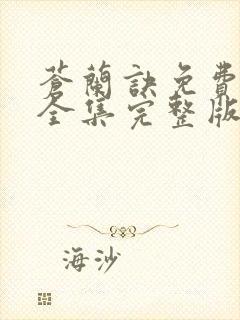 蒼蘭訣免費
全集完整版
海沙